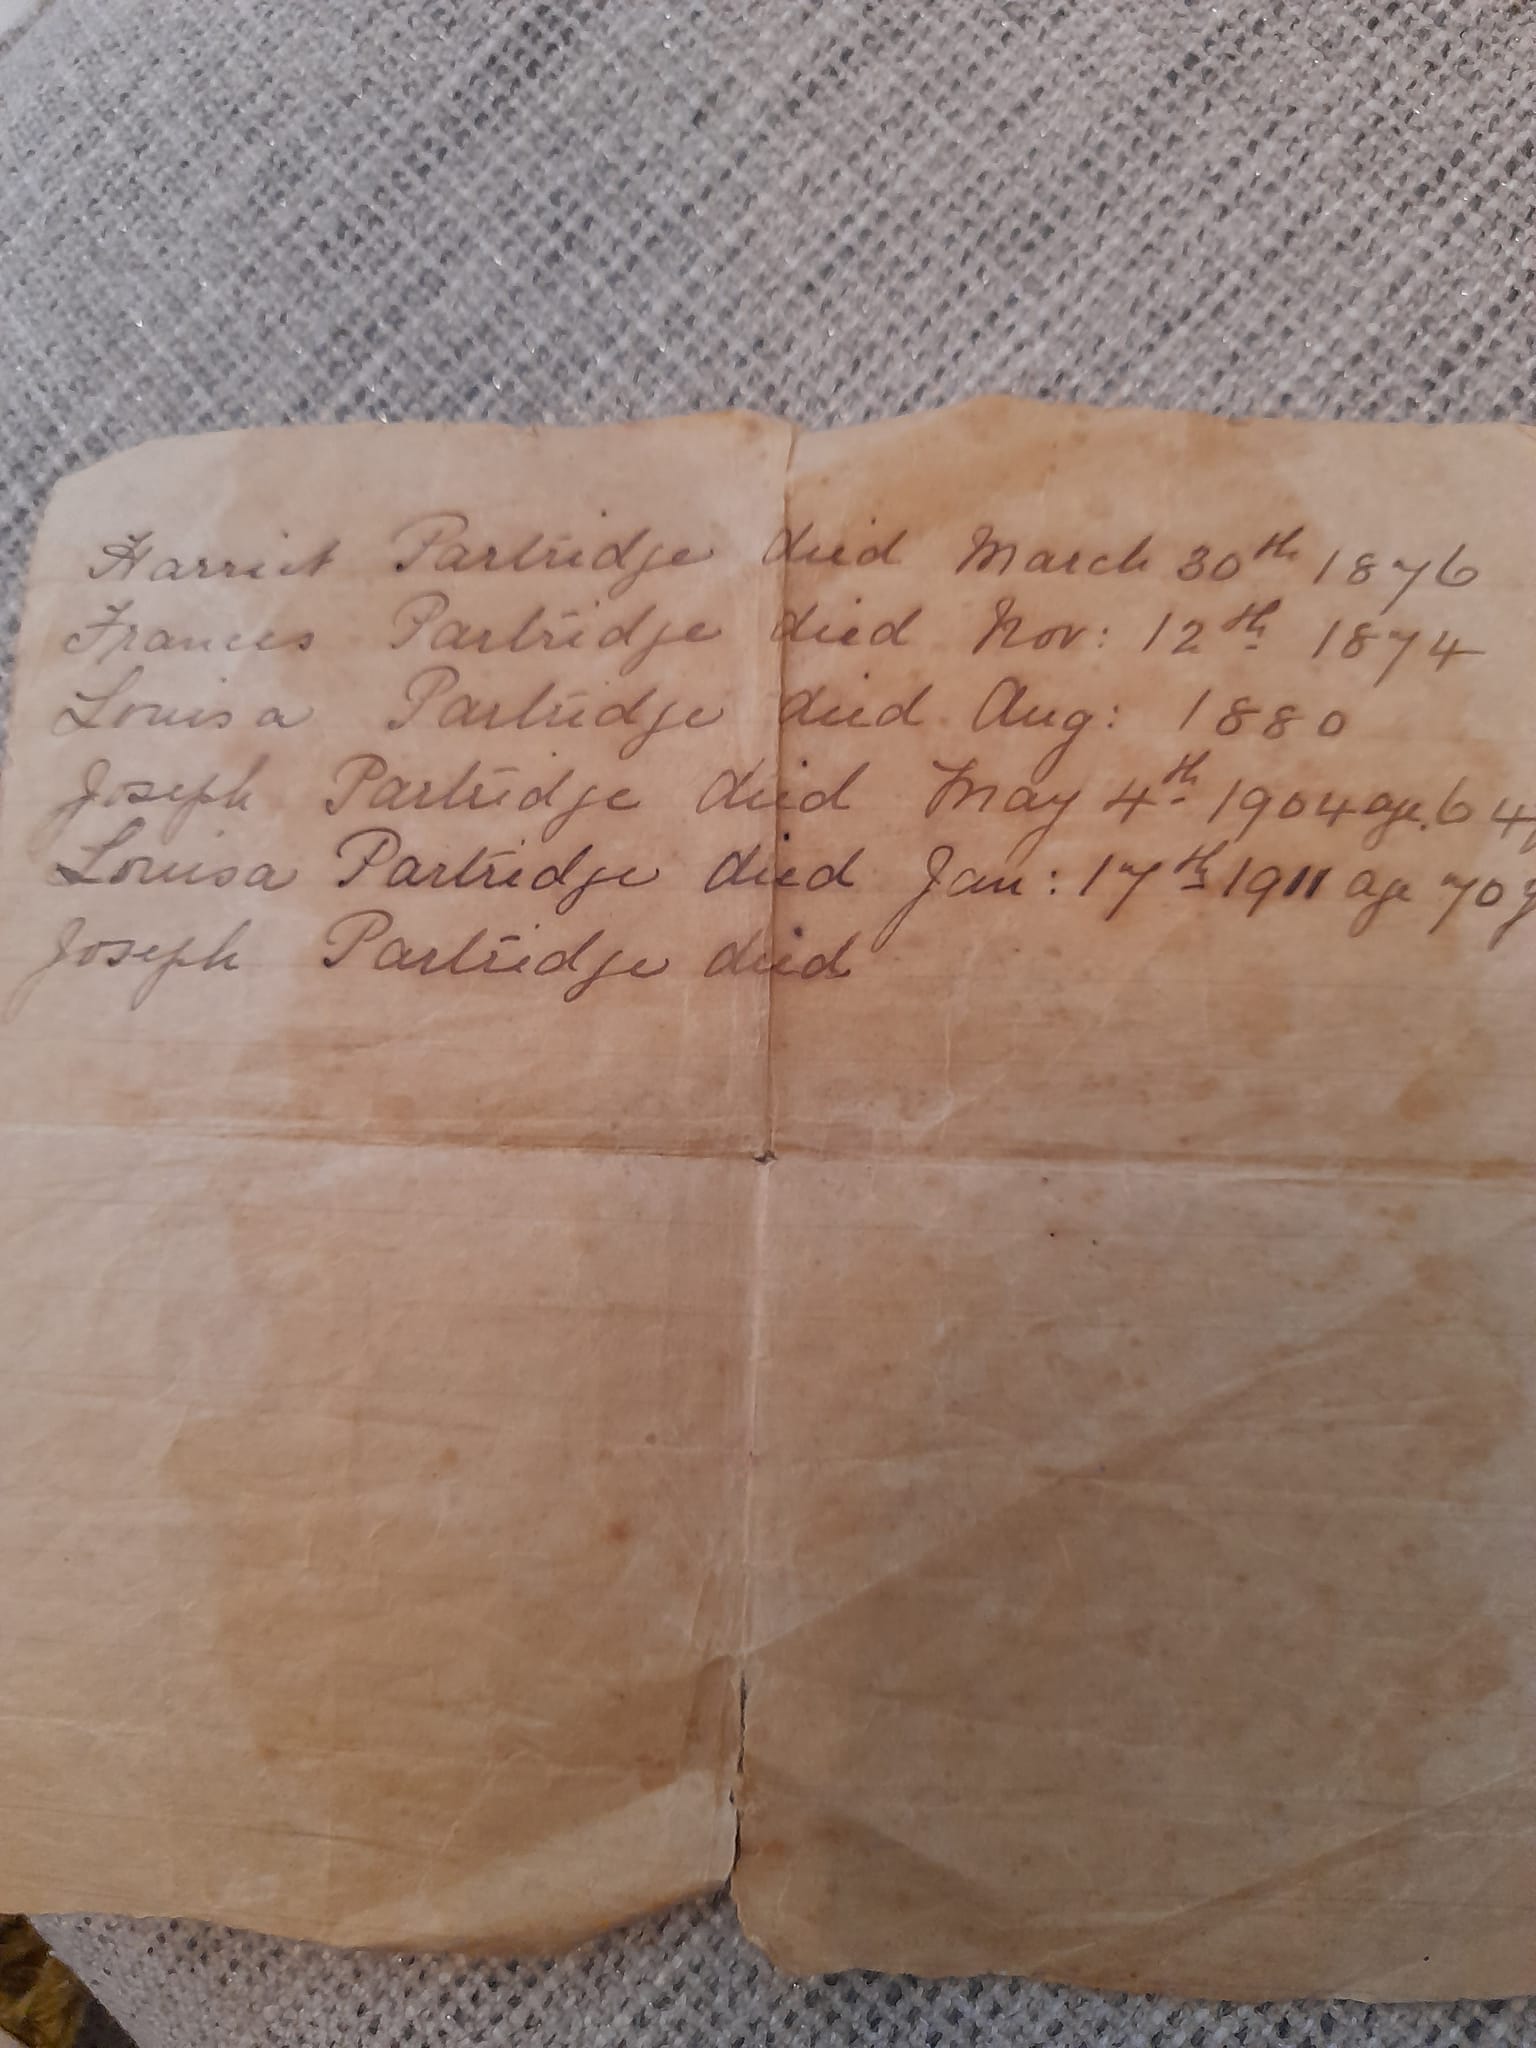 Harriet Partridge died March 30th 1876
Frances Partridge died Nov: 12th 1874
Louisa Partridge died Aug: 1880
Joseph Partridge died May 4th 1904 age. 64
Louisa Partridge died Jan: 17th 1911 age 70 y
Joseph Partridge died